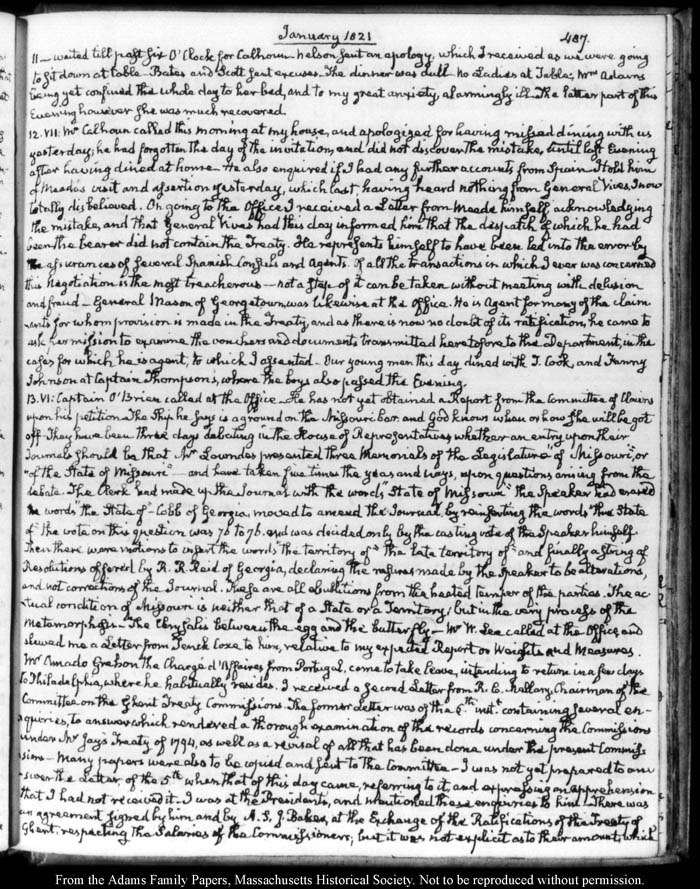 January 1821
487.
11_ waited till past six O'Clock for Calhoun. Nelson sent an apology, which I received as we were going
to sit down at table_ Bates and Scott sent excuses. The dinner was dull. No Ladies at Table; Mrs Adams
being yet confined the whole day to her bed, and to my great anxiety, alarmingly ill. The latter part of this
Evening however she was much recovered.
12. VII: Mr Calhoun called this morning at my house, and apologized for having missed dining with us
yesterday; he had forgotten the day of the invitation, and did not discover the mistake, until last Evening
after having dined at home_ He also enquired if I had any further accounts from Spain I told him
of Meade's visit and assertion yesterday, which last, having heard nothing from General Vives, I now
totally disbelieved. On going to the Office I received a Letter from Meade himself, acknowledging
the mistake, and that General Vives had this day informed him that the despatch of which he had
been the bearer did not contain the Treaty. He represents himself to have been led into the error by
the assurances of several Spanish Consuls and Agents. Of all the transactions in which I ever was concerned
this Negotiation is the most treacherous_ not a step of it can be taken without meeting with delusion
and fraud_ General Mason of Georgetown, was likewise at the Office. He is Agent for many of the claim
ants for whom provision is made in the Treaty, and as there is now no doubt of its ratification, he came to
ask permission to examine the vouchers and documents transmitted heretofore to the Department, in the
cases for which he is agent, to which I assented_ Our young men this day dined with J. Cook, and Fanny
Johnson at Captain Thompson's, where the boys also passed the Evening.
13. VI: Captain O'Brien called at the Office_ He has not yet obtained a Report from the Committee of Claims
upon his petition. The Ship he says is aground on the Missouri bar. and God knows when or how she will be got
off. They have been three days debating in the House of Representatives whether an entry upon their
Journals should be that Mr Lowndes presented three Memorials of the Legislature of Missouri, or
"of the State of Missouri"_ and have taken five times the yeas and nays, upon questions arising from the
debate. The Clerk had made up the Journal with the words "State of Missouri" the Speaker had erased
the words "the State of"_ Cobb of Georgia, moved to amend the Journal, by reinserting the words "the State
of" the vote on this question was 76 to 76. and was decided only by the casting vote of the Speaker himself.
Then there were motions to insert the words "the territory of" "the late territory of" and finally a string of
Resolutions offered by R. R. Reid of Georgia, declaring the rasures made by the Speaker to be alterations,
and not corrections of the Journal. These are all ebullitions from the heated temper of the parties. The ac-
tual condition of Missouri is neither that of a State or a Territory; but in the very process of the
Metamorphosis_ The Chrysalis between the egg and the butterfly_ Mr W. Lee called at the Office, and
shewed me a Letter from Tench Coxe to him, relative to my expected Report on Weights and Measures.
Mr Amado Grehon the Chargé d'Affaires from Portugal, came to take leave, intending to return in a few days
to Philadelphia, where he habitually resides. I received a second Letter from R. C. Mallary, Chairman of the
Committee on the Ghent Treaty Commissions. The former Letter was of the 5th inst. containing several en-
quiries, to answer which rendered a thorough examination of the records concerning the Commissions
under Mr Jay's Treaty of 1794, as well as a revisal of all that has been done under the present Commiss
sions_ Many papers were also to be copied and sent to the Committee_ I was not yet prepared to ans
swer the Letter of the 5th when that of this day came, referring to it, and expressing an apprehension
that I had not received it. I was at the President's, and mentioned these enquiries to him_ There was
an agreement signed by him and by A. S. J. Baker, at the Exchange of the Ratifications of the Treaty of
Ghent, respecting the Salaries of the Commissioners; but it was not explicit as to their amount, which
From the Adams Family Papers, Massachusetts Historical Society. Not to be reproduced without permission.